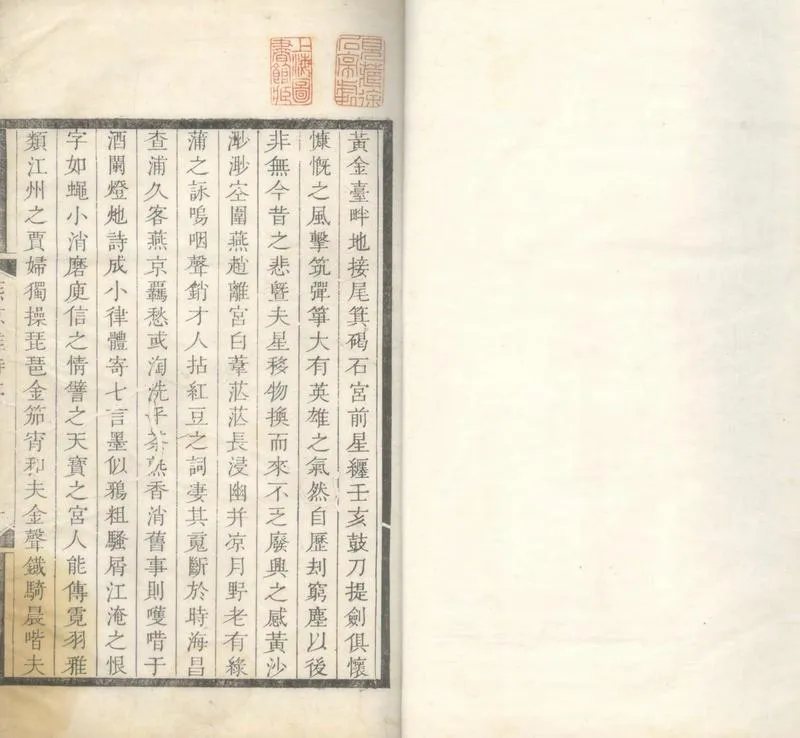 上海圖
書館藏
黃金臺畔地接尾箕碣石宮前星纏壬亥鼓刀提劍俱懷
慷慨之風擊筑彈箏大有英雄之氣然自歷刼窮塵以後
非無今昔之悲曁夫星移物換而來不乏廢興之感黃沙
渺渺空圍燕趙離宮白葦茫茫長浸幽并凉月野老有綠
蒲之詠嗚咽聲銷才人拈紅豆之詞凄其䰟斷於時海昌
查浦久客燕京羈愁或淘洗乎茶熟香消舊事則嚄唶于
酒闌燈灺詩成小律體寄七言墨似鴉粗騷屑江淹之恨
字如蠅小消磨庾信之情譬之天寶之宮人能傳霓羽雅
類江州之賈婦獨操琵琶金笳宵和夫金聲鐵騎晨喈夫